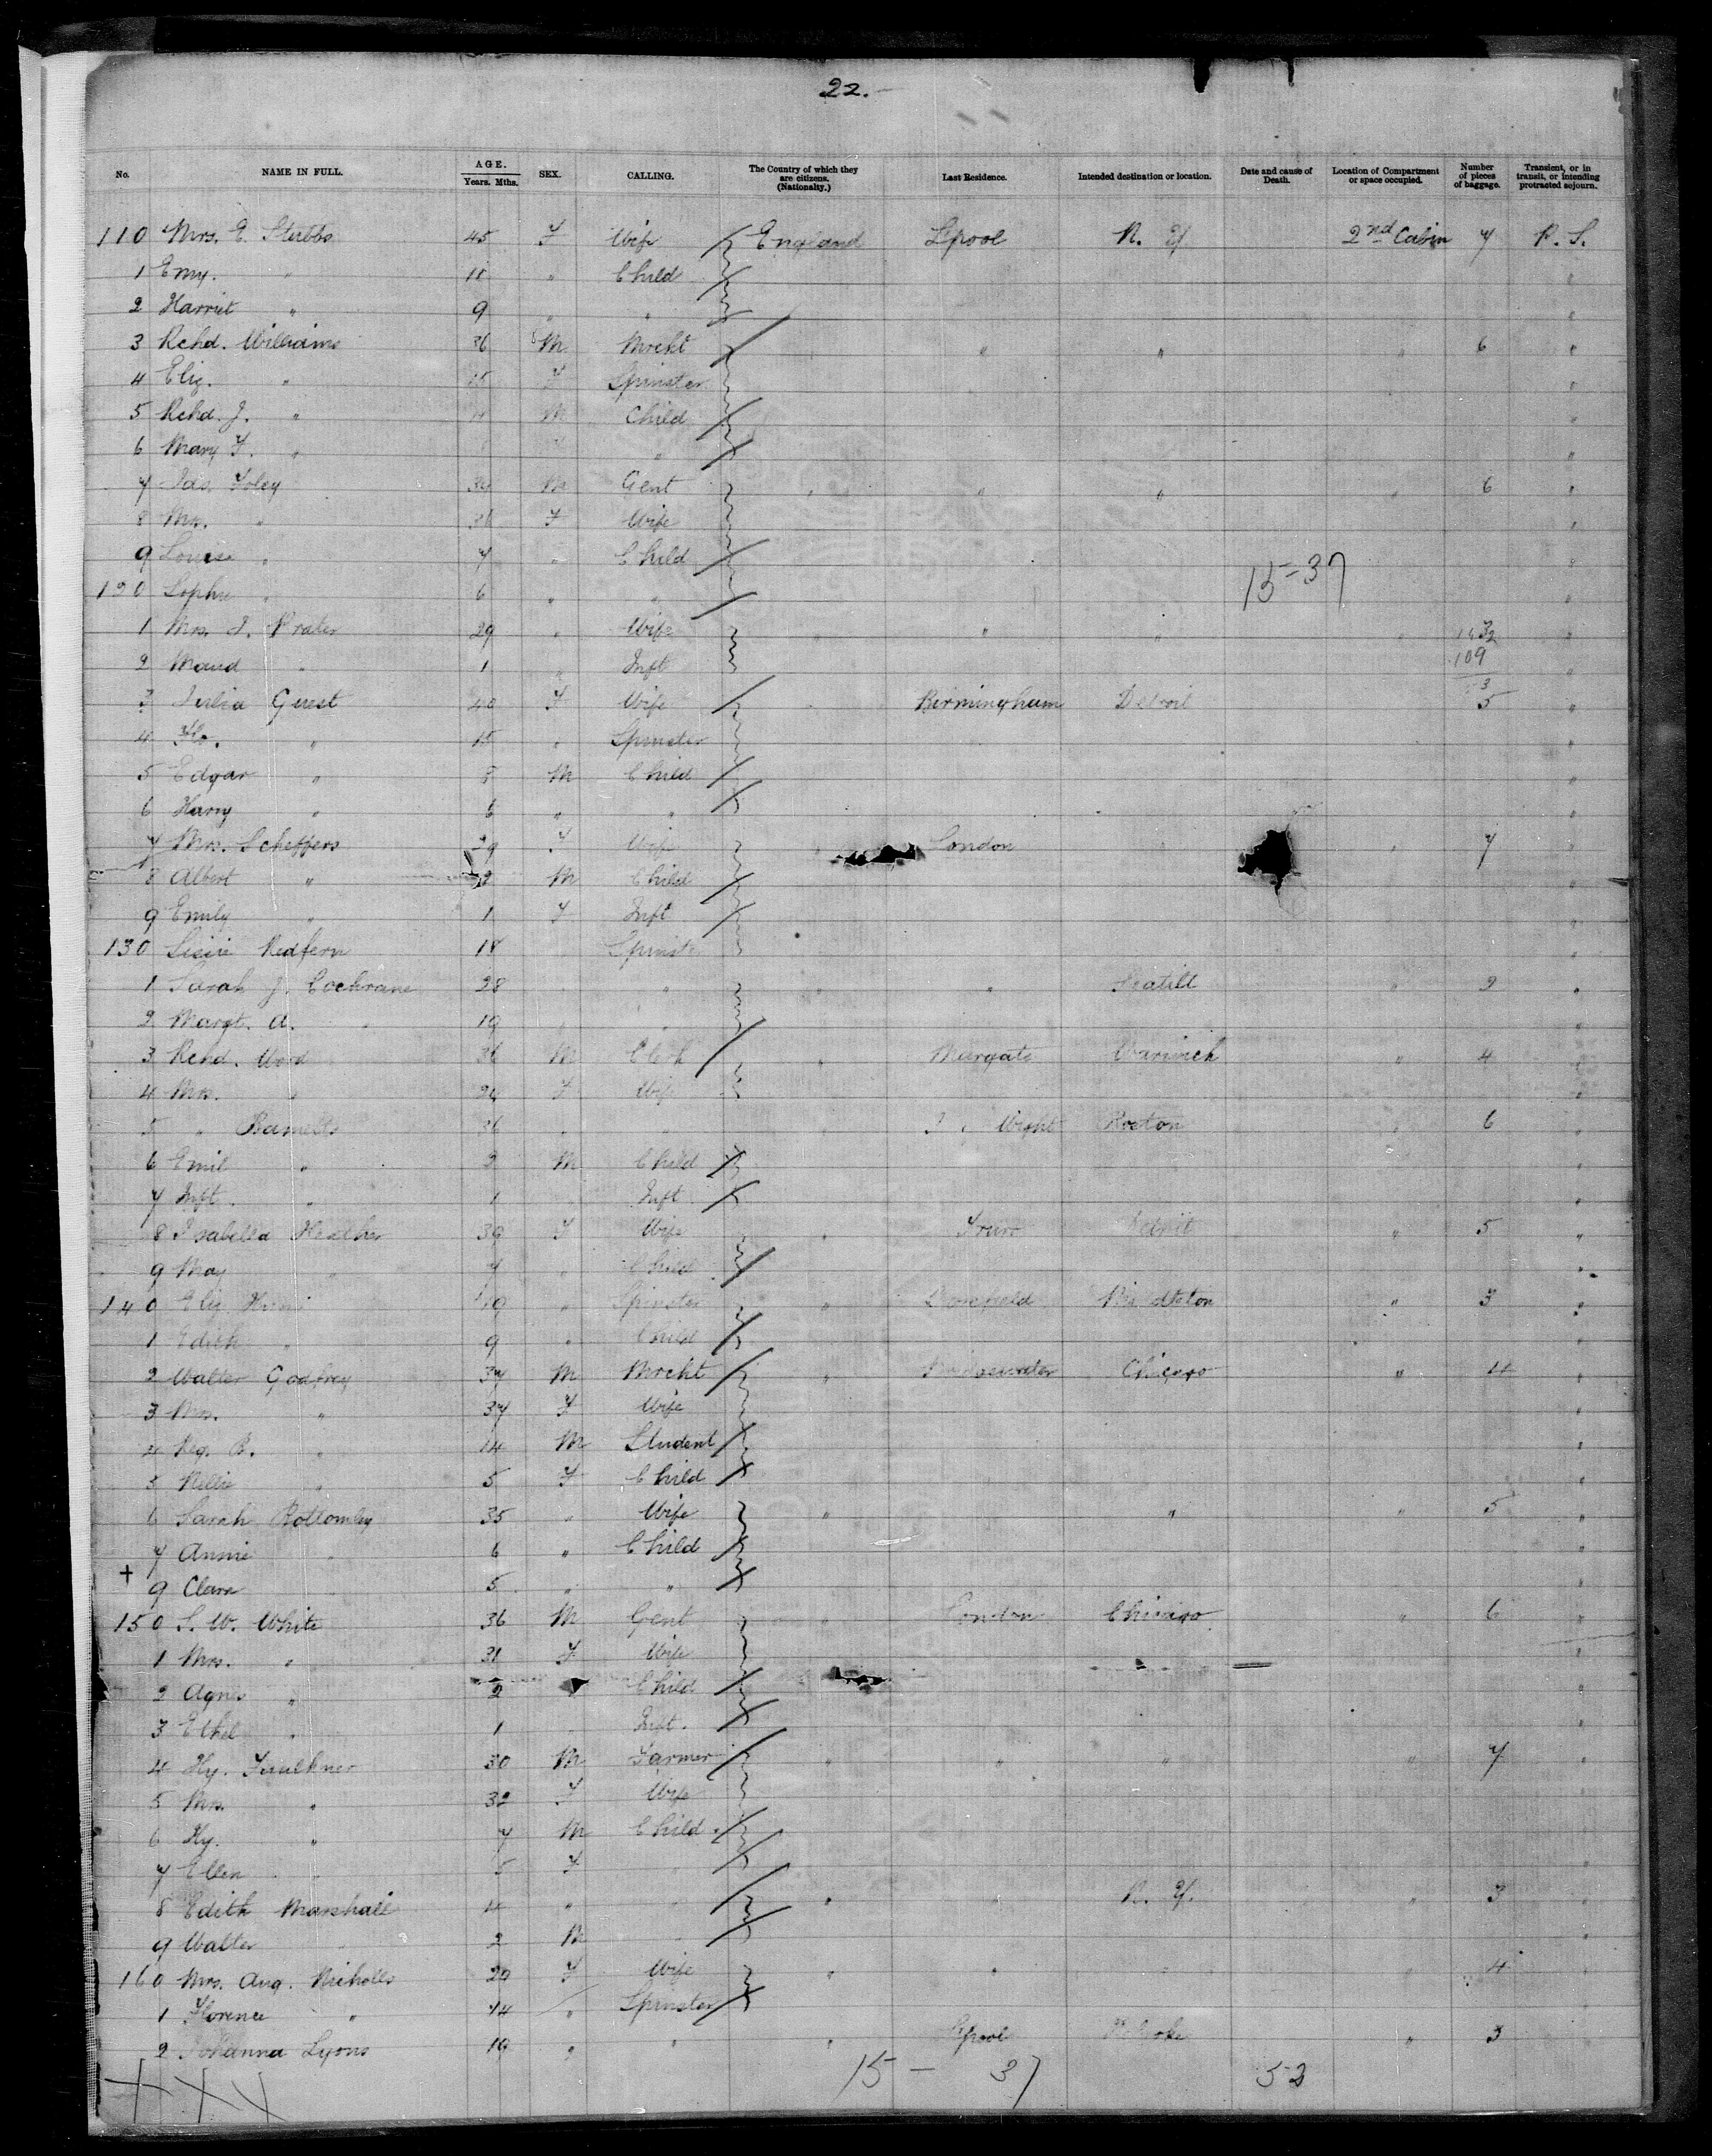 22.
No. NAME IN FULL. AGE. Years. Mths. SEX. CALLING. The Country of which they are citizens. (Nationality.) Last Residence. Intended destination or location. Date and cause of Death. Location of Compartment or space occupied. Number of pieces of baggage. Transient, or in transit, or intending protracted sojourn.
110 Mrs. E. Stubbs 45 F Wife England Lpool N. Y. 2nd Cabin 7 P. S.
1 Emy. " 11 " Child "
2 Harriet " 9 " " "
3 Rchd. Williams 36 M Mrcht " " " 6 "
4 Eliz. " 15 F Spinster "
5 Rchd. J. " M Child "
6 Mary F. " " "
7 Jas. Foley 34 M Gent " " " " 6 "
8 Mrs. " 36 F Wife "
9 Louise " 7 " Child "
15-37
120 Sophie " 6 " " "
1 Mrs. J. Prater 29 " Wife " " " " "
109
2 Maud " 1 " Inft "
3 Julia Guest 40 F Wife Birmingham Detroit 5 "
4 Flo. " 15 " Spinster "
5 Edgar " 8 M Child "
6 Harry " 6 " " "
7 Mrs. Scheffers 29 F Wife London " 7 "
8 Albert " 2 M Child "
9 Emily " 1 F Inft "
130 Lizzie Redfern 18 Spinst "
1 Sarah J. Cochrane 28 " " " Seatill " 2 "
2 Margt. A. " 19 " "
3 Rchd. Wood 36 M Clerk " Margate Warwick " 4 "
4 Mrs. " 24 F Wife "
5 " 36 " " Wight Boston " 6 "
6 Emil " 2 M Child "
7 Inft. " 1 Inft "
8 Isabella Heather 39 F Wife " Truro " 5 "
9 May " 7 " Child "
140 Eliz. 19 " Spinster " " 3 "
1 Edith " 9 " Child "
2 Walter Godfrey 37 M Mrcht " Bridgewater Chicago " 4 "
3 Mrs. " 37 F Wife "
4 Reg. B. " 14 M Student "
5 Nellie " 5 F Child "
6 Sarah Bottomley 35 " Wife " " " 5 "
7 Annie " 6 " Child "
+ 9 Clara 5 " " "
150 S. W. White 36 M Gent " London Chicago " 6 "
1 Mrs. " 31 F Wife "
2 Agnes " 2 " Child "
3 Ethel " 1 " Inft. "
4 Hy. Faulkner 30 M Farmer " " " " 7 "
5 Mrs. " 32 F Wife "
6 Hy. " 7 M Child "
7 Ellen " 5 F "
8 Edith Marshall 4 " " " " N. Y. " 3 "
9 Walter 2 M " "
160 Mrs. Aug. Nicholls 29 F Wife " " " " 4 "
1 Florence " 14 " Spinster
2 Johanna Lyons 19 " " " Lpool " 3
15 - 37 52